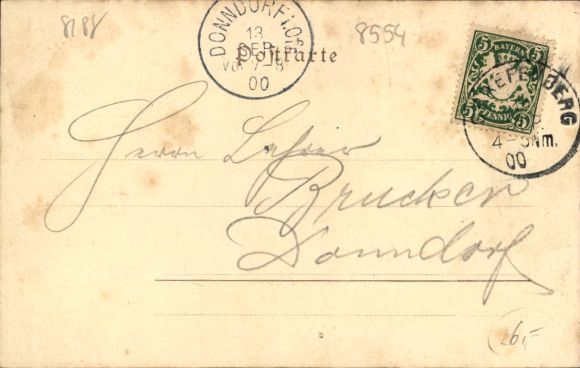 8188
8554
DONNDORF i.OFR.
13
SEP.
Vor 7-8
00
Postkarte
5 BAYERN 5
5 PFENNIG 5
BERG
4-5Nm.
00
Herrn Lehrer
Brucker
Donndorf
26,-